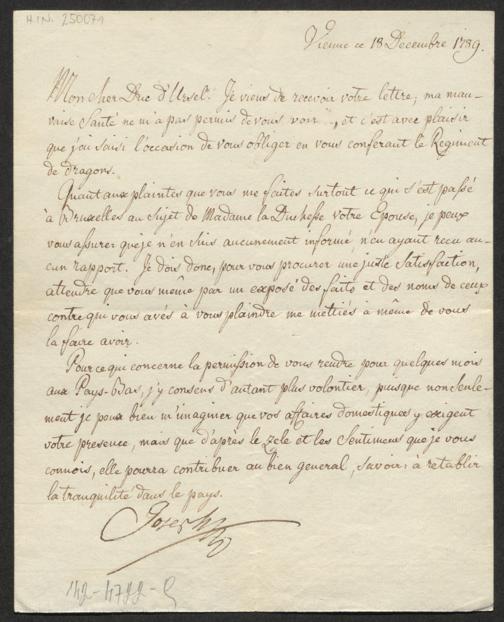 H.I.N. 250079
Vienne ce 18 Decembre 1789.
Mon cher Duc d'Ursel. Je viens de recevoir votre lettre; ma mau-
vaise Santé ne m'a pas permis de vous voir, et c'est avec plaisir
que j'ai saisi l'occasion de vous obliger en vous conferant le Regiment
de dragons.
Quant aux plaintes que vous me faites surtout ce qui s'est passé
à Bruxelles au sujet de Madame la Duchesse votre Epouse, je peux
vous assurer que je n'en suis aucunement informé n'en ayant recu au-
cun rapport. Je dois donc, pour vous procurer une juste Satisfaction,
attendre que vous même par un exposé des faits et des noms de ceux
contre qui vous avés à vous plaindre me mettiés à même de vous
la faire avoir.
Pour ce qui concerne la permission de vous rendre pour quelques mois
aux Pays-Bas, j'y consens d'autant plus volontier, puisque non seule-
ment je peux bien m'imaginer que vos affaires domestiques y exigent
votre presence, mais que d'après le zele et les Sentimens que je vous
connois, elle pourra contribuer au bien general, savoir: à retablir
la tranquilité dans le pays.
Joseph